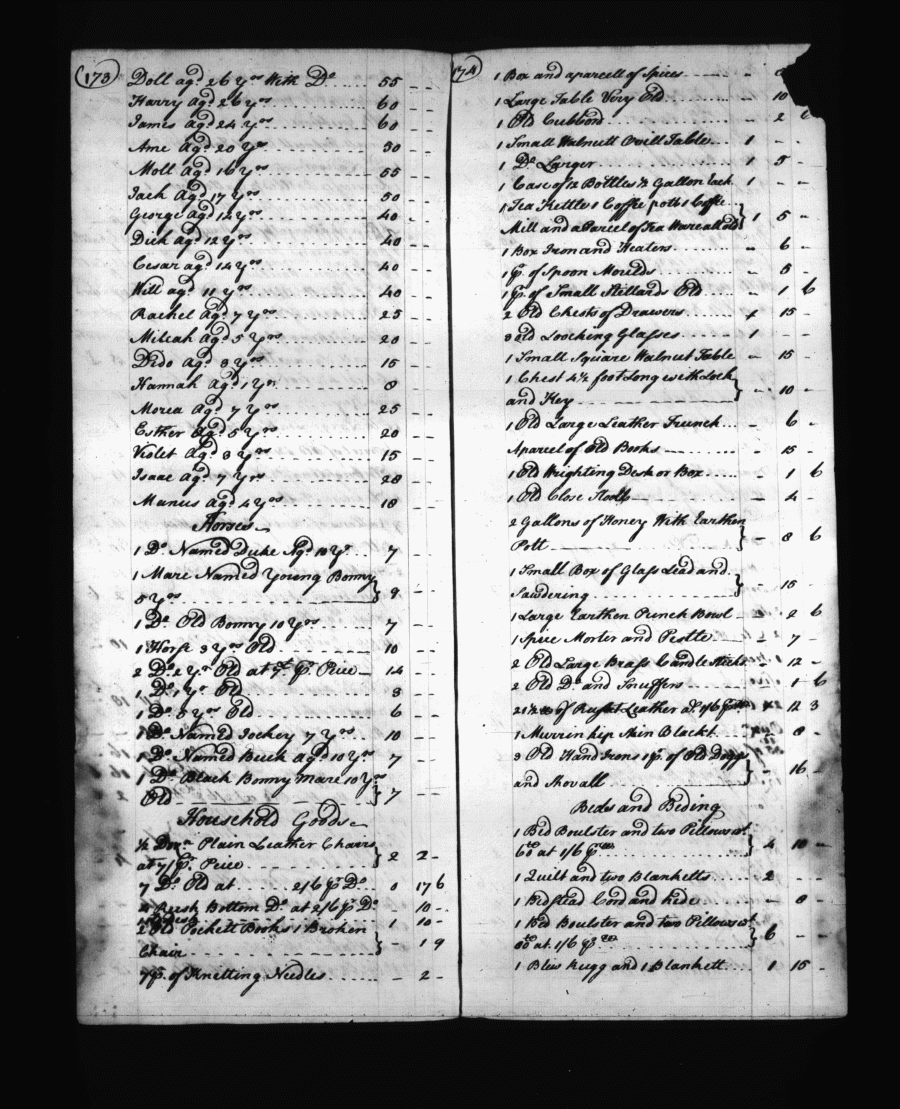 (173)
Doll agd 26 Yrs With Do 55 - -
Harry Agd 26 Yrs 60 - -
James Agd 24 Yrs 60 - -
Ame Agd 20 Yrs 30 - -
Moll Agd 16 Yrs 55 - -
Jack Agd 17 Yrs 50 - -
George Agd 12 Yrs 40 - -
Dick Agd 12 Yrs 40 - -
Cesar agd 14 Yrs 40 - -
Will agd 11 Yrs 40 - -
Rachel Agd 7 Yrs 25 - -
Milcah Agd 5 Yrs 20 - -
Dido Agd 3 Yrs 15 - -
Hannah Agd 1 Yr 8 - -
Morea Agd 7 Yrs 25 - -
Esther Agd 5 Yrs 20 - -
Violet Agd 3 Yrs 15 - -
Isaac Agd 7 Yrs 28 - -
Manus Agd 4 Yrs 18 - -
Horses
1 Do Named Duke Agd 10 Yrs 7 - -
1 Mare Named Young Bonny
5 Yrs 9 - -
1 Do Old Bonny 10 Yrs 7 - -
1 Horse 3 Yrs Old 10 - -
2 Do 2 Yr Old at 7£ pr Peice 14 - -
1 Do 1 Yr Old 3 - -
1 Do 3 Yrs Old 6 - -
1 Do Named Jockey 7 Yrs 10 - -
1 Do Named Buck Agd 10 Yrs 7 - -
1 Do Black Bonny Mare 10 Yrs
Old 7 - -
Household Goods
½ Dozn Plain Leather Chairs
at 7/ pr Peice 2 2 -
7 Do Old at 2/6 pr Do 0 17 6
4 Rush Bottom Do at 2/6 pr Do - 10 -
1 10 -
2 Old Pockett Books 1 Broken
Chair - 1 9
7 pr of Knitting Needles - 2 -
174
1 Box and a parcell of Spices -
1 Large Table Very Old - 10
1 Old Cubbord - 2 6
1 Small Walnutt Ovill Table 1 - -
1 Do Larger 1 5 -
1 Case of 12 Bottles ½ Gallon Each 1 - -
1 Tea Kettle 1 Coffie pott 1 Coffie
Mill and a Parcel of Tea Ware all old 1 5 -
1 Box Iron and Heaters - 6 -
1 pr of Spoon Moulds - 5 -
1 pr of Small Stillards Old - 1 6
2 Old Chests of Drawers 15 -
3 old Loocking Glasses 1 - -
1 Small Square Walnut Table - 15 -
1 Chest 4½ foot Long with Lock
and Key - 10 -
1 Old Large Leather Trunck - 6 -
A parcel of Old Books - 15 -
1 Old Wrighting Desk or Box - 1 6
1 Old Close Stooll - 4 -
2 Gallons of Honey With Earthen
Pott - 8 6
1 Small Box of Glass Lead and
Sawdering - 15 -
1 Large Earthen Punch Bowl - 2 6
1 Spice Morter and Pestle - 7 -
2 Old Large Brass Candlesticks - 12 -
2 Old Do and Snuffers - 1 6
21½ of Leather at 1/6 12 3
1 Murrin hip Skin Blackt - 8 -
3 Old Hand Irons 1 pr of Old Doggs
and Shovall - 16 -
Beds and Beding
1 Bed Boulster and two Pillows wt
60 at 1/6 pr 4 10 -
1 Quilt and two Blanketts 2 - -
1 Bedstead Cord and hide - 8 -
1 Bed Boulster and two Pillows wt
80 at 1/6 pr 6 - -
1 Blew Rugg and 1 Blankett 1 15 -